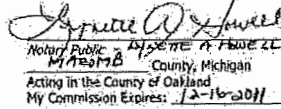 Lynette A Howell
Notary Public - LYNETTE A HOWELL
MACOMB County, Michigan
Acting in the County of Oakland
My Commission Expires: 12-16-2011